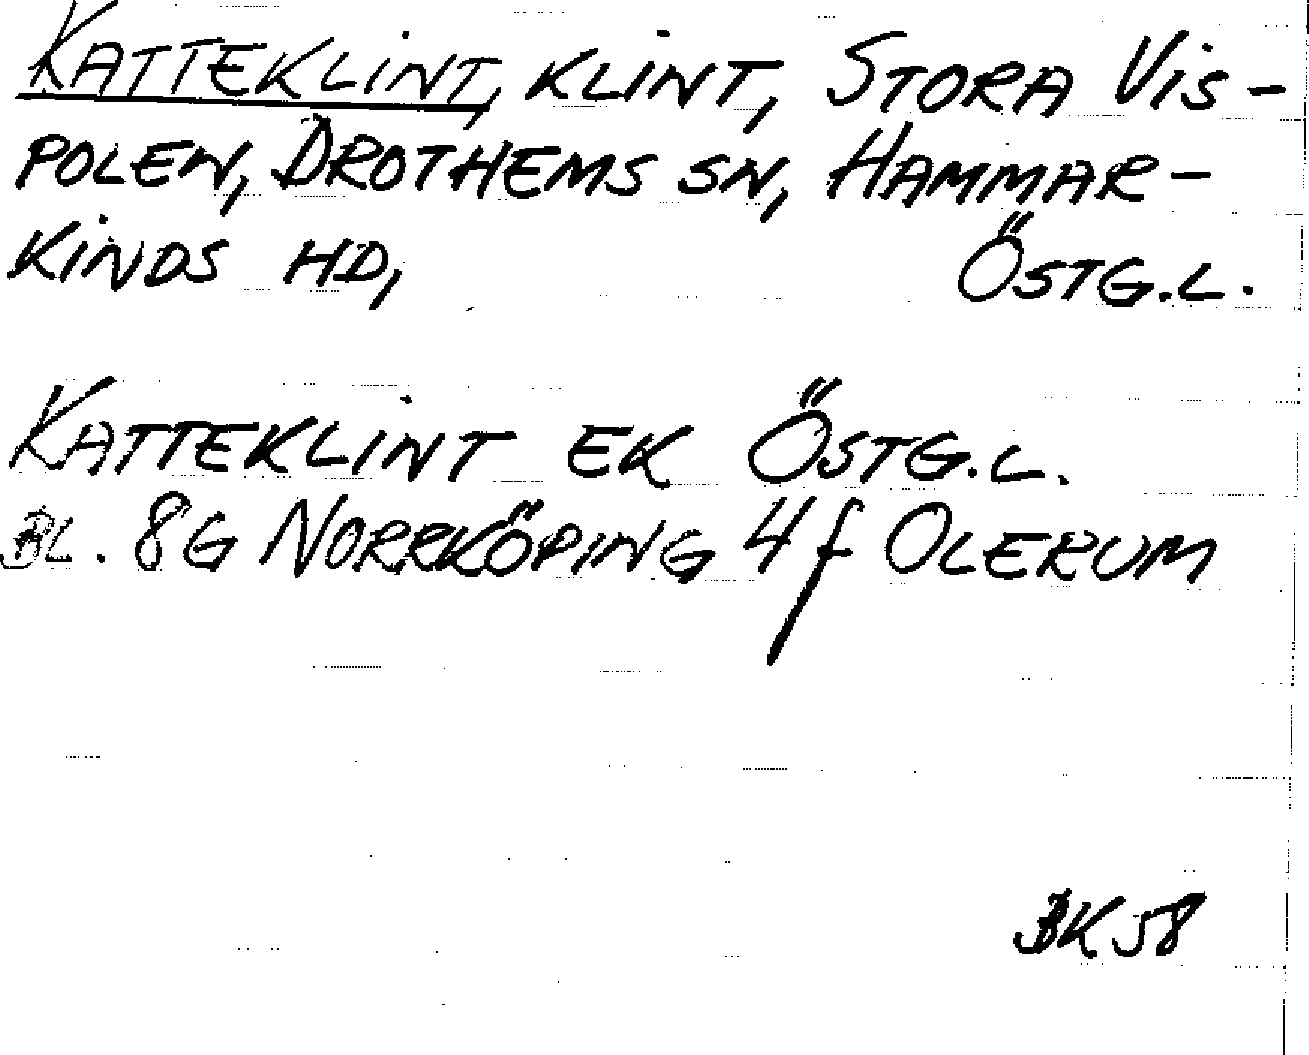 KATTEKLINT, KLINT, STORA VIS-
POLEN, DROTHEMS SN, HAMMAR-
KINDS HD, ÖSTG.L.
KATTEKLINT EK ÖSTG.L.
BL. 8G NORRKÖPING 4f OLERUM
BK 58